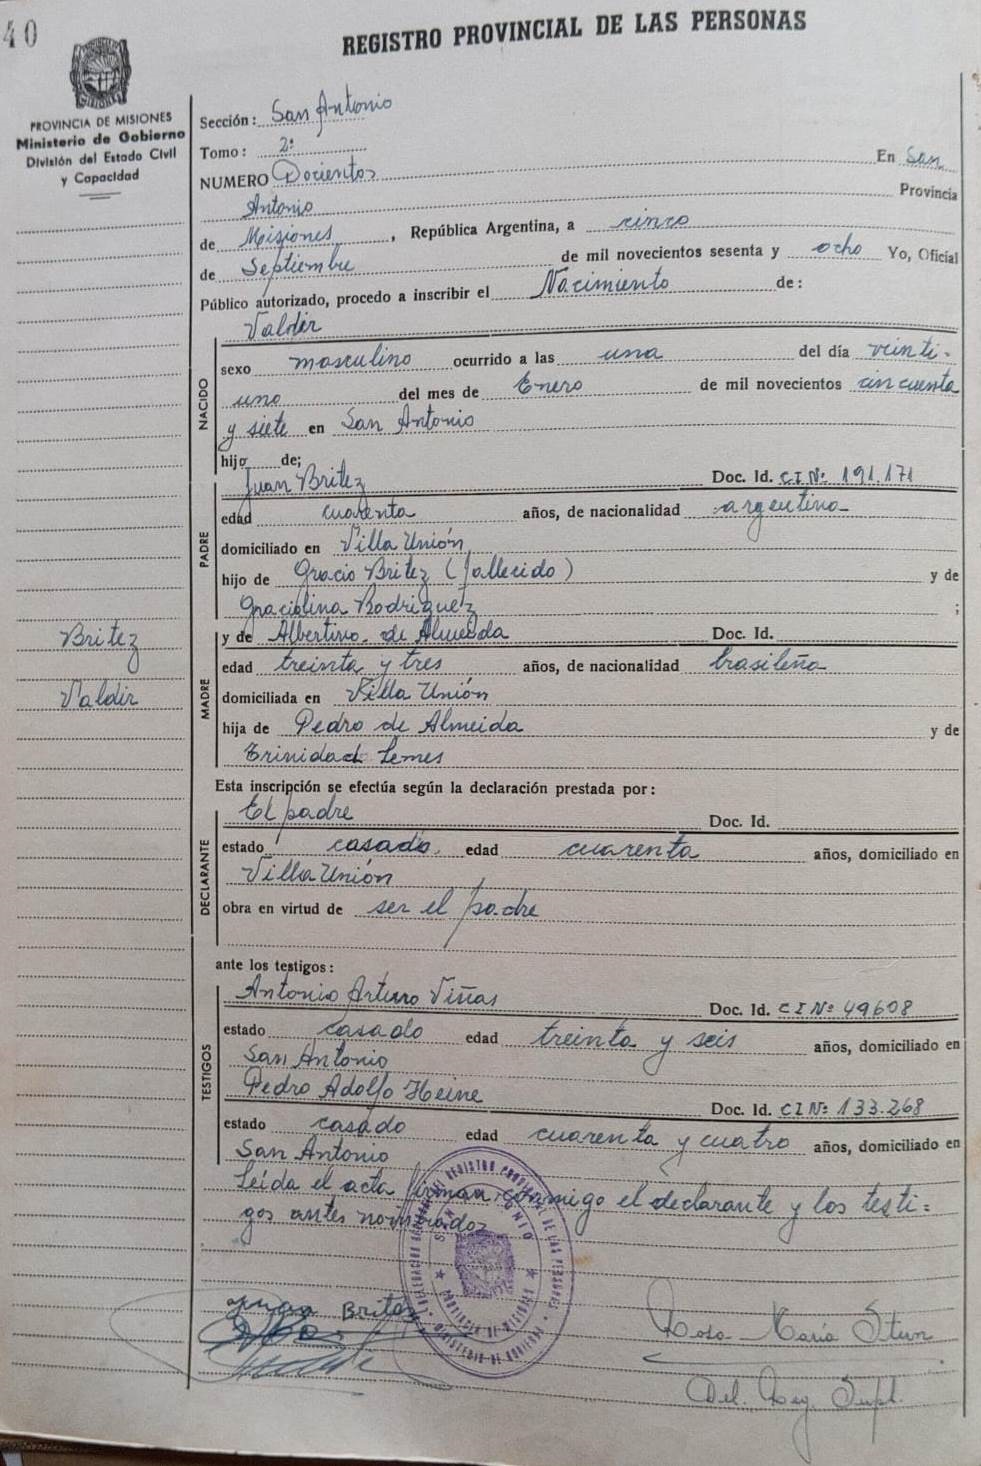 40
REGISTRO PROVINCIAL DE LAS PERSONAS
PROVINCIA DE MISIONES
Ministerio de Gobierno
División del Estado Civil
y Capacidad
Sección: San Antonio
Tomo: 2º
NUMERO Docientos En San
Antonio Provincia
de Misiones, República Argentina, a cinco
de Septiembre de mil novecientos sesenta y ocho Yo, Oficial
Público autorizado, procedo a inscribir el Nacimiento de:
Valdir
NACIDO
sexo masculino ocurrido a las una del día veinti-
uno del mes de Enero de mil novecientos cincuenta
y siete en San Antonio
hijo de;
PADRE
Juan Britez Doc. Id. C.I.Nº 191.171
edad cuarenta años, de nacionalidad argentina
domiciliado en Villa Unión
hijo de Gracio Britez (fallecido) y de
Graciolina Rodriguez ;
Britez
Valdir
MADRE
y de Albertina de Almeida Doc. Id.
edad treinta y tres años, de nacionalidad brasileña
domiciliada en Villa Unión
hija de Pedro de Almeida y de
Trinidad Lemes
Esta inscripción se efectúa según la declaración prestada por:
DECLARANTE
El padre Doc. Id.
estado casado edad cuarenta años, domiciliado en
Villa Unión
obra en virtud de ser el padre
ante los testigos:
TESTIGOS
Antonio Arturo Viñas Doc. Id. C I Nº 49608
estado casado edad treinta y seis años, domiciliado en
San Antonio
Pedro Adolfo Heine Doc. Id. C I Nº 133.268
estado casado edad cuarenta y cuatro años, domiciliado en
San Antonio
Leída el acta firman conmigo el declarante y los testi=
gos antes nombrados
Juan Britez
Rosa María Stern
Del. Reg. Supl.